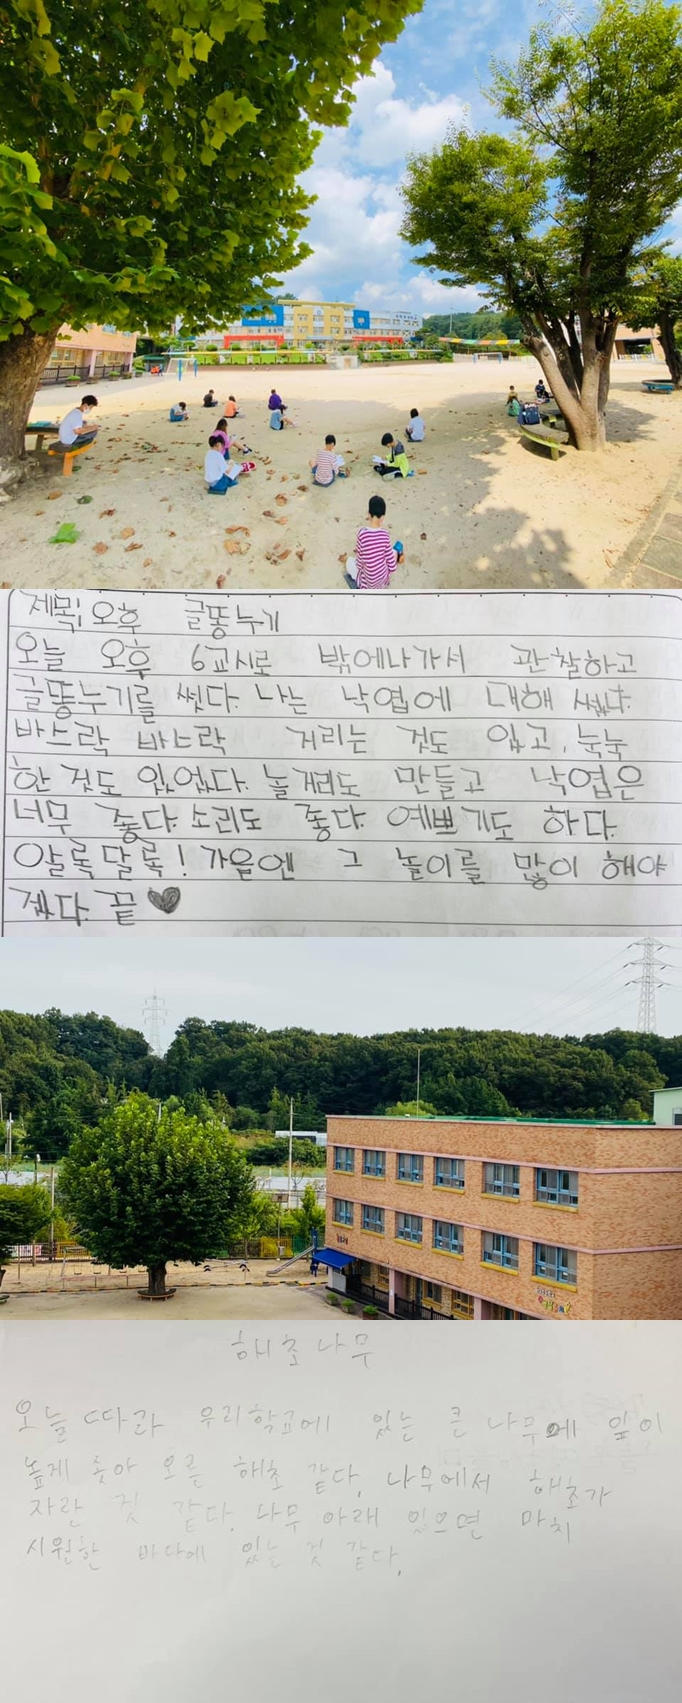 제목: 오후 글똥누기
오늘 오후 6교시로 밖에나가서 관찰하고
글똥누기를 썼다. 나는 낙엽에 대해 썼다.
바스락 바스락 거리는 것도 있고, 눅눅
한 것도 있었다. 놀거리도 만들고 낙엽은
너무 좋다. 소리도 좋다. 예쁘기도 하다.
알록달록! 가을엔 그 놀이를 많이 해야
겠다. 끝♥
해초나무
오늘따라 우리학교에 있는 큰 나무에 잎이
높게 솟아 오른 해초 같다. 나무에서 해초가
자란 것 같다. 나무 아래 있으면 마치
시원한 바다에 있는 것 같다.